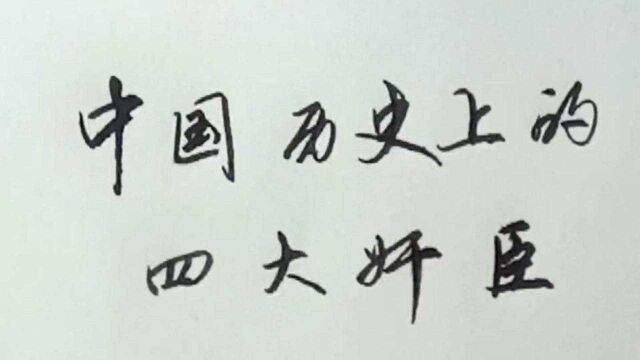 中国历史上的
四大奸臣